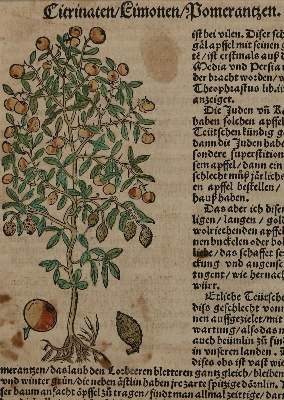 Citrinaten/Limonen/Pomerantzen.
ist bei vilen. Diser sch
gål apffel mit seinen g
te/ist erstmals auß d
Media vnd Persia
der bracht worden/w
Theophrastus lib.
anzeiger.
Die Juden vñ
haben solchen apffel
Teütschen kündig g
dann die Juden habe
sondere superstition
sem apffel/dann ein
schlecht můß järliche
en apffel bestellen/
hauß haben.
Das aber ich disen
ligen/langen/gold
wolriechenden apffe
nen buckelen oder bol
liebe/das schaffet se
ckung vnd augensch
tugent/wie hernach
würt.
Etliche Teütsche
diß geschlecht vom
nen auffgezielet/mit
wartung/also das m
auch beümlin zů find
in vnseren landen.
diseß obs ist vast wie
merantzen/das laub den Lorbeeren bletteren gantz gleich/bleiben
vnd winter grün/die neben åstlin haben jre zarte spitzige dörnlin.
ser baum anfacht åpffel zů tragen/findt man allwegen zeitig vnd